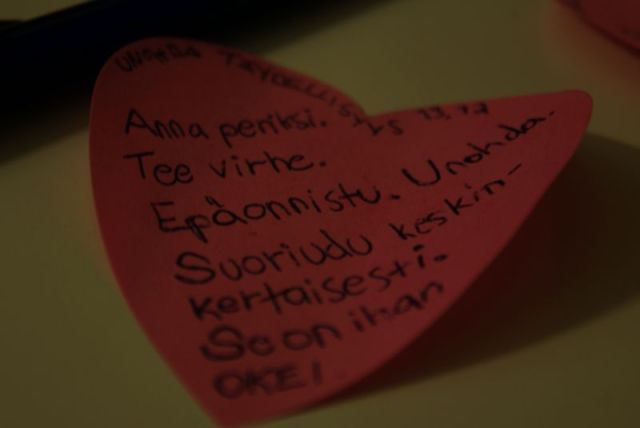 UNOHDA TÄYDELLISYYS
Anna periksi.
Tee virhe.
Epäonnistu. Unohda.
Suoriudu keskin-
kertaisesti.
Se on ihan
OKEI